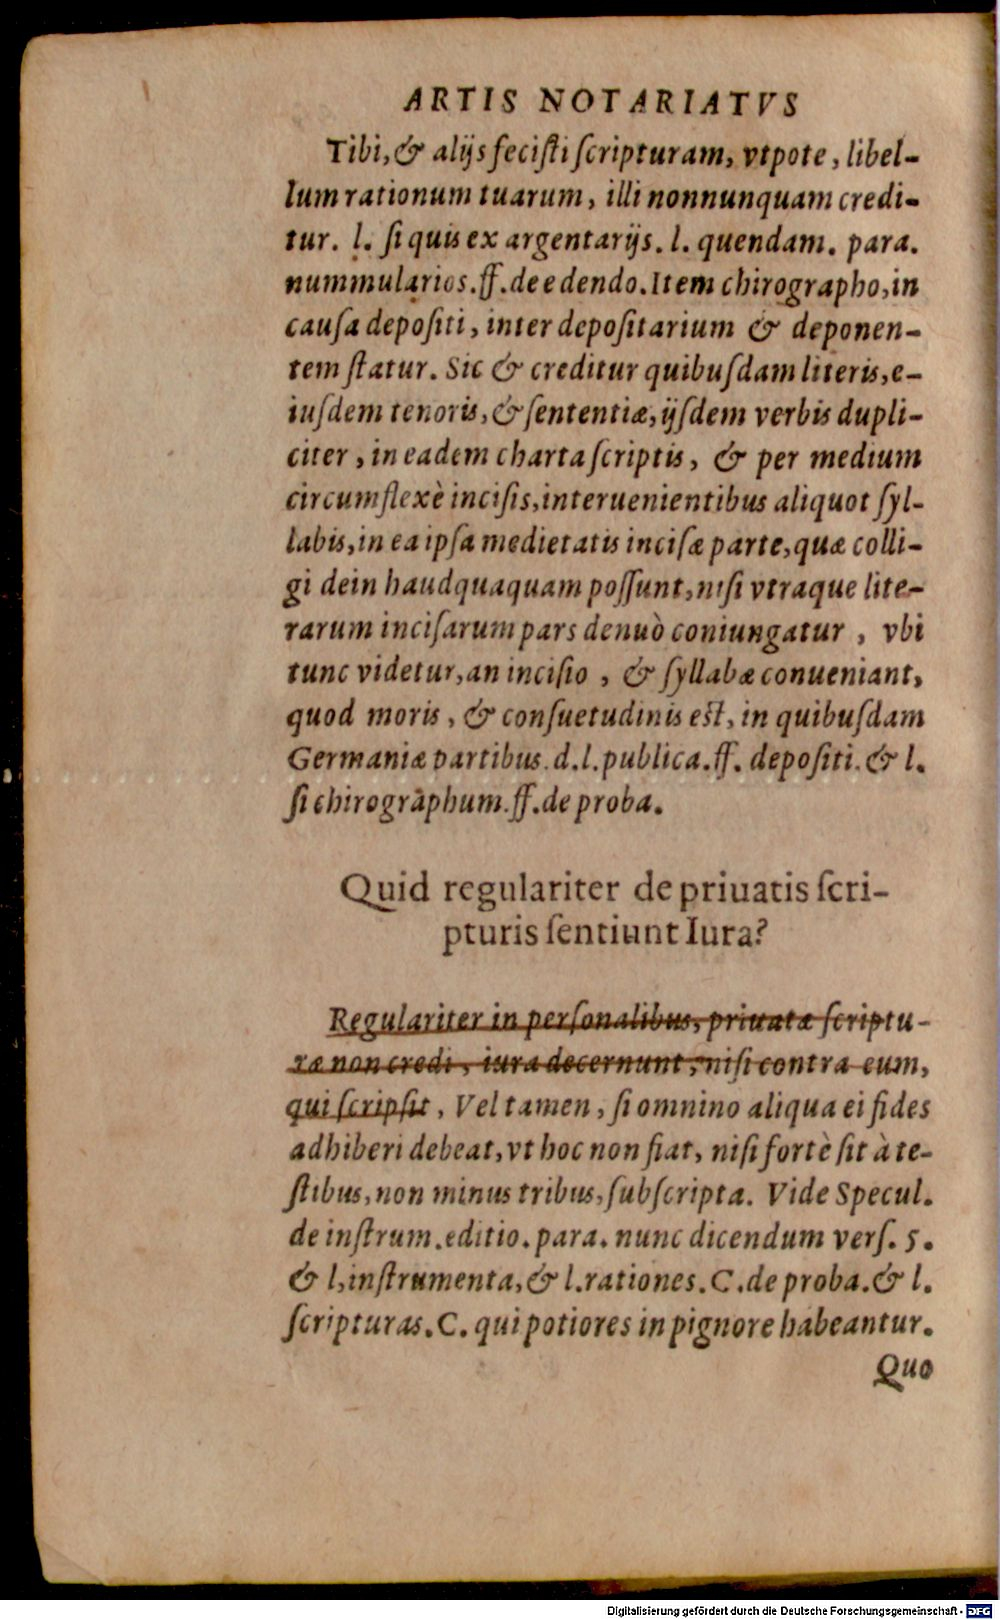 ARTIS NOTARIATVS
Tibi, & alijs fecisti ſcripturam, vtpote, libel-
lum rationum tuarum, illi nonnunquam credi-
tur. l. ſi quis ex argentarijs. l. quendam. para.
nummularios. ff. de edendo. Item chirographo, in
cauſa depoſiti, inter depoſitarium & deponen-
tem ſtatur. Sic & creditur quibuſdam literis, e-
iuſdem tenoris, & ſententiæ, ijſdem verbis dupli-
citer, in eadem charta ſcriptis, & per medium
circumflexè inciſis, interuenientibus aliquot ſyl-
labis, in ea ipſa medietatis inciſæ parte, quæ colli-
gi dein haudquaquam poſſunt, niſi vtraque lite-
rarum inciſarum pars denuò coniungatur, vbi
tunc videtur, an inciſio, & ſyllabæ conueniant,
quod moris, & conſuetudinis eſt, in quibuſdam
Germaniæ partibus. d. l. publica. ff. depoſiti. & l.
ſi chirographum. ff. de proba.
Quid regulariter de priuatis ſcri-
pturis ſentiunt Iura?
Regulariter in perſonalibus, priuatæ ſcriptu-
ræ non credi, iura decernunt, niſi contra eum,
qui ſcripſit, Vel tamen, ſi omnino aliqua ei fides
adhiberi debeat, vt hoc non fiat, niſi fortè ſit à te-
ſtibus, non minus tribus, ſubſcripta. Vide Specul.
de inſtrum. editio. para. nunc dicendum verſ. 5.
& l, inſtrumenta, & l. rationes. C. de proba. & l.
ſcripturas. C. qui potiores in pignore habeantur.
Quo
Digitalisierung gefördert durch die Deutsche Forschungsgemeinschaft - DFG